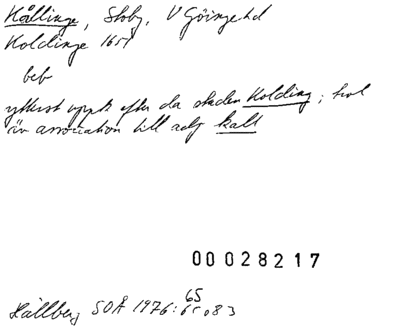 Kållinge, Stoby, V Göinge hd
Koldinge 1651
beb
ytterst uppk efter da staden Kolding; trol
är association till adj kall
00028217
Hallberg SOÅ 1976: 65 o 83